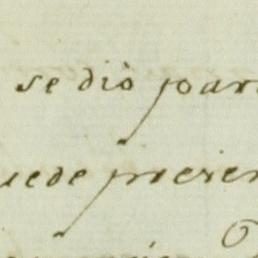 se diò par
uede presen